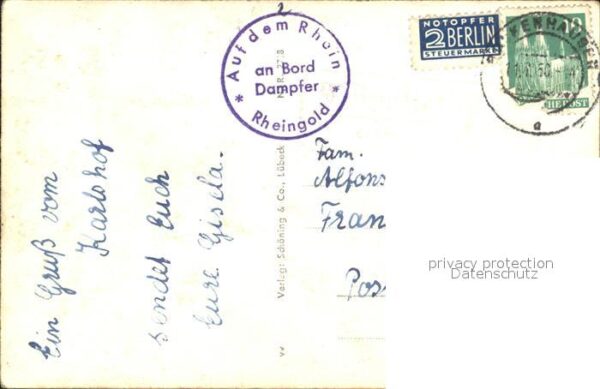 2
Auf dem Rhein
an Bord
Dampfer
Rheingold
NOTOPFER
2 BERLIN
STEUERMARKE
HERBST
Ein Gruß vom
Karlshof
sendet Euch
Eure Gisela.
Verlag: Schöning & Co., Lübeck
Fam.
Alfons
Fran
Pos
privacy protection
Datenschutz